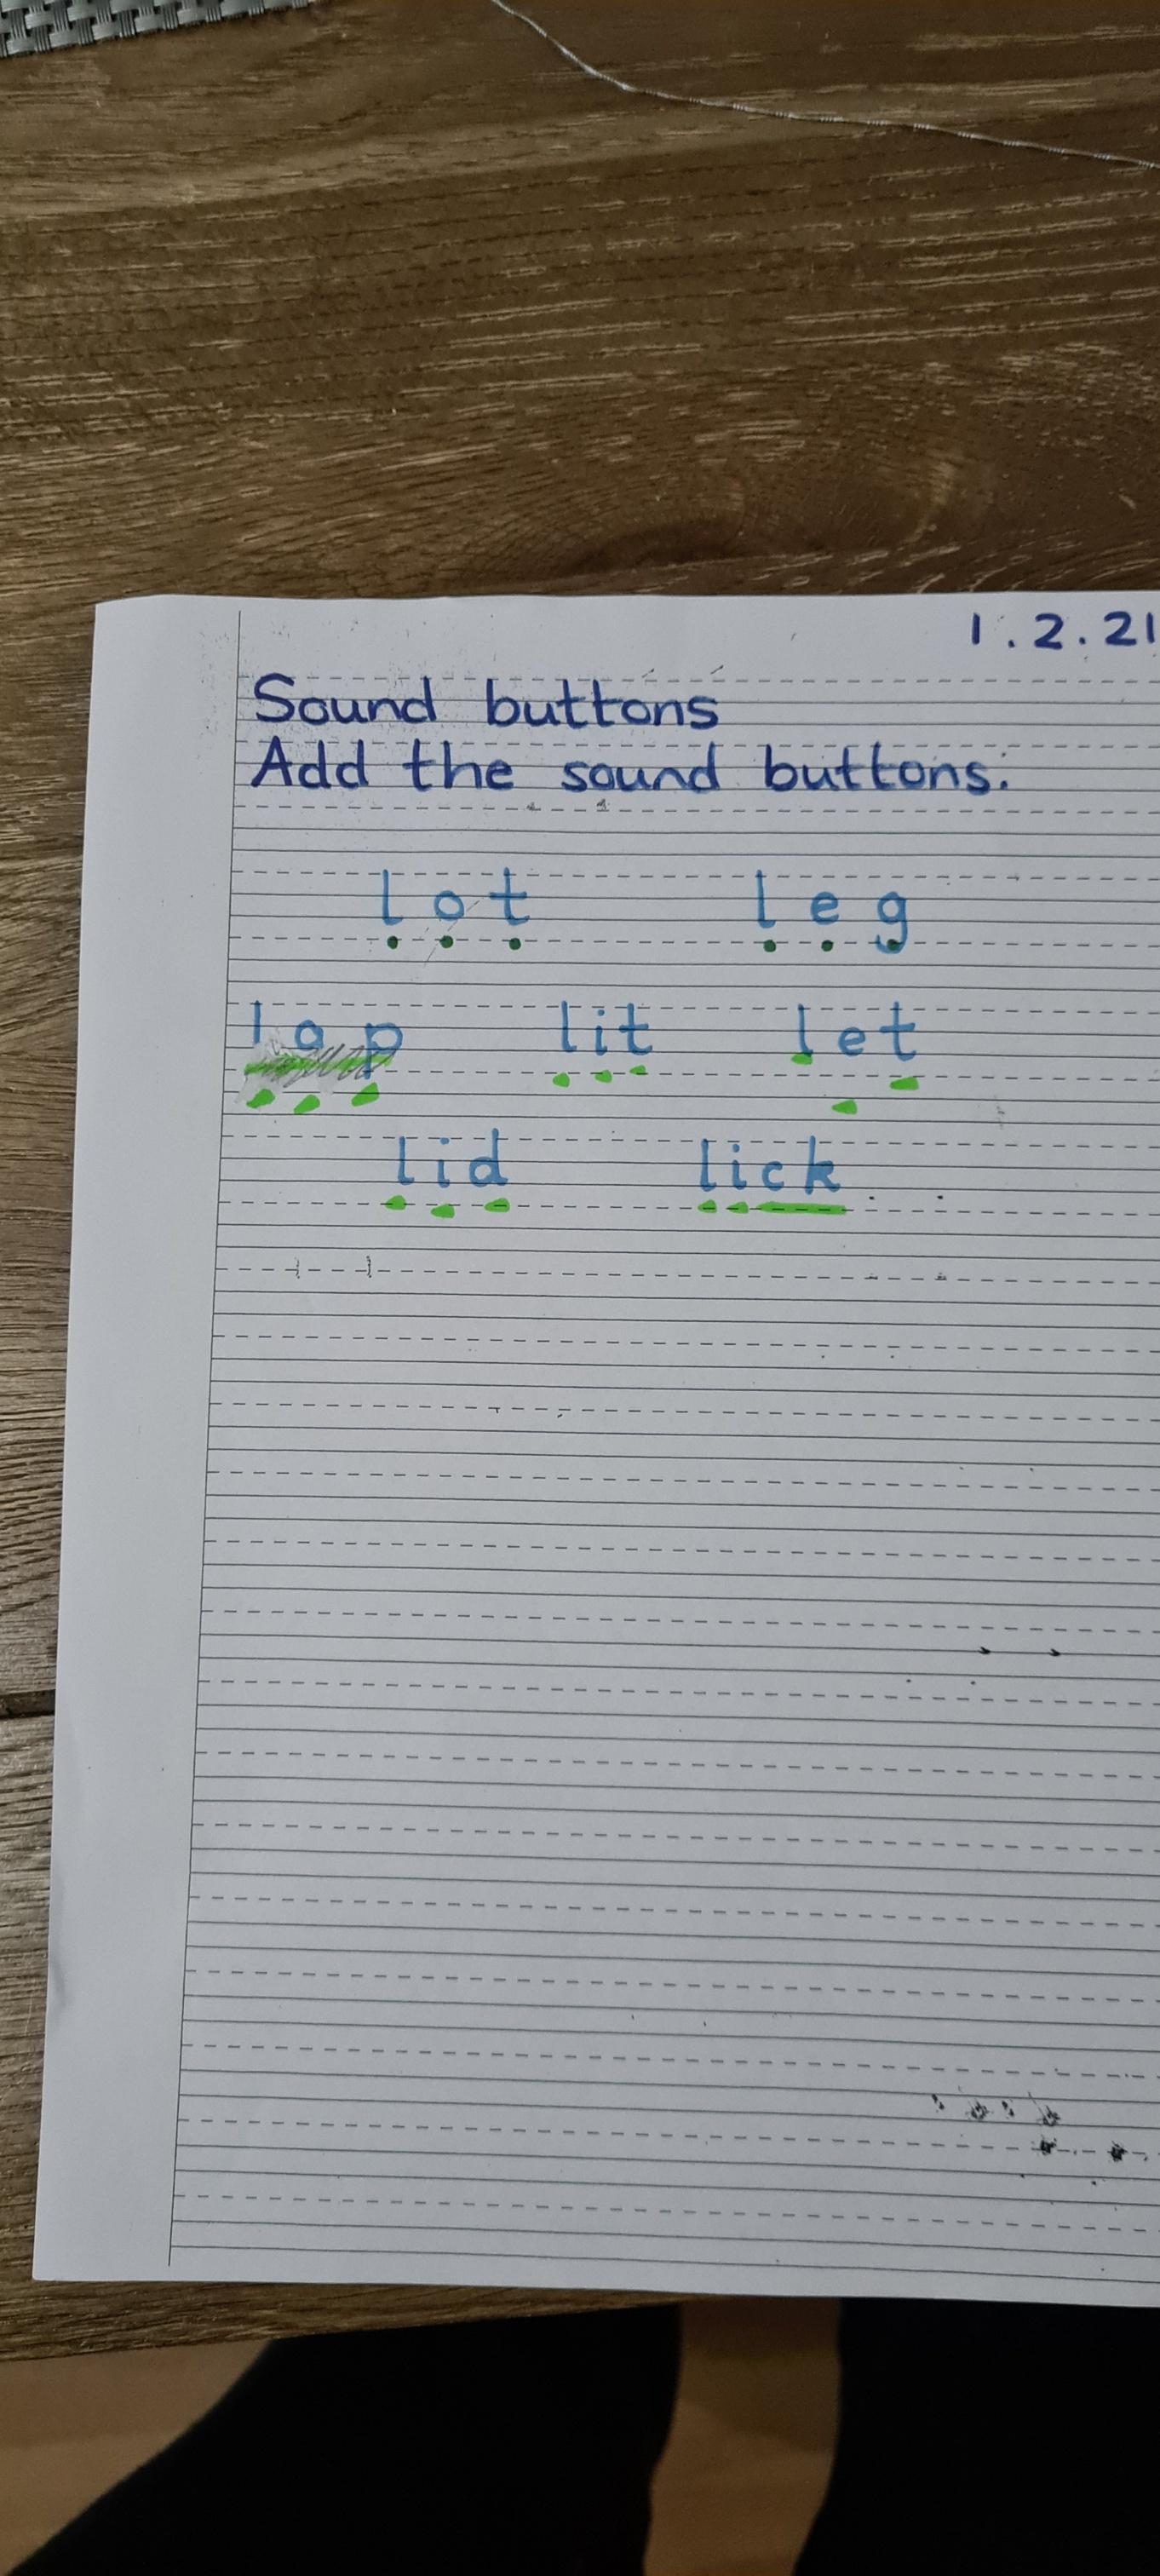 1.2.21
Sound buttons
Add the sound buttons.
lot leg
lap lit let
lid lick